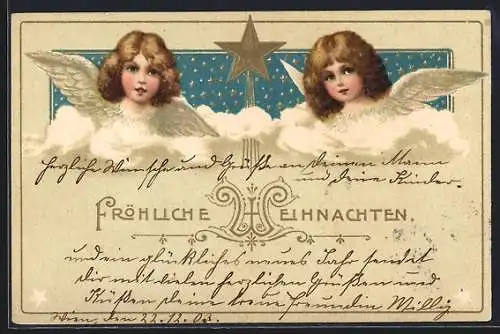 herzliche Wünsche und Grüße an Deinen Mann
und deine Kinder.
FRÖHLICHE WEIHNACHTEN.
und ein glückliches neues Jahr sendet
dir mit vielen herzlichen Grüßen und
Küßen Deine treue Freundin
Wien, den 22.12.